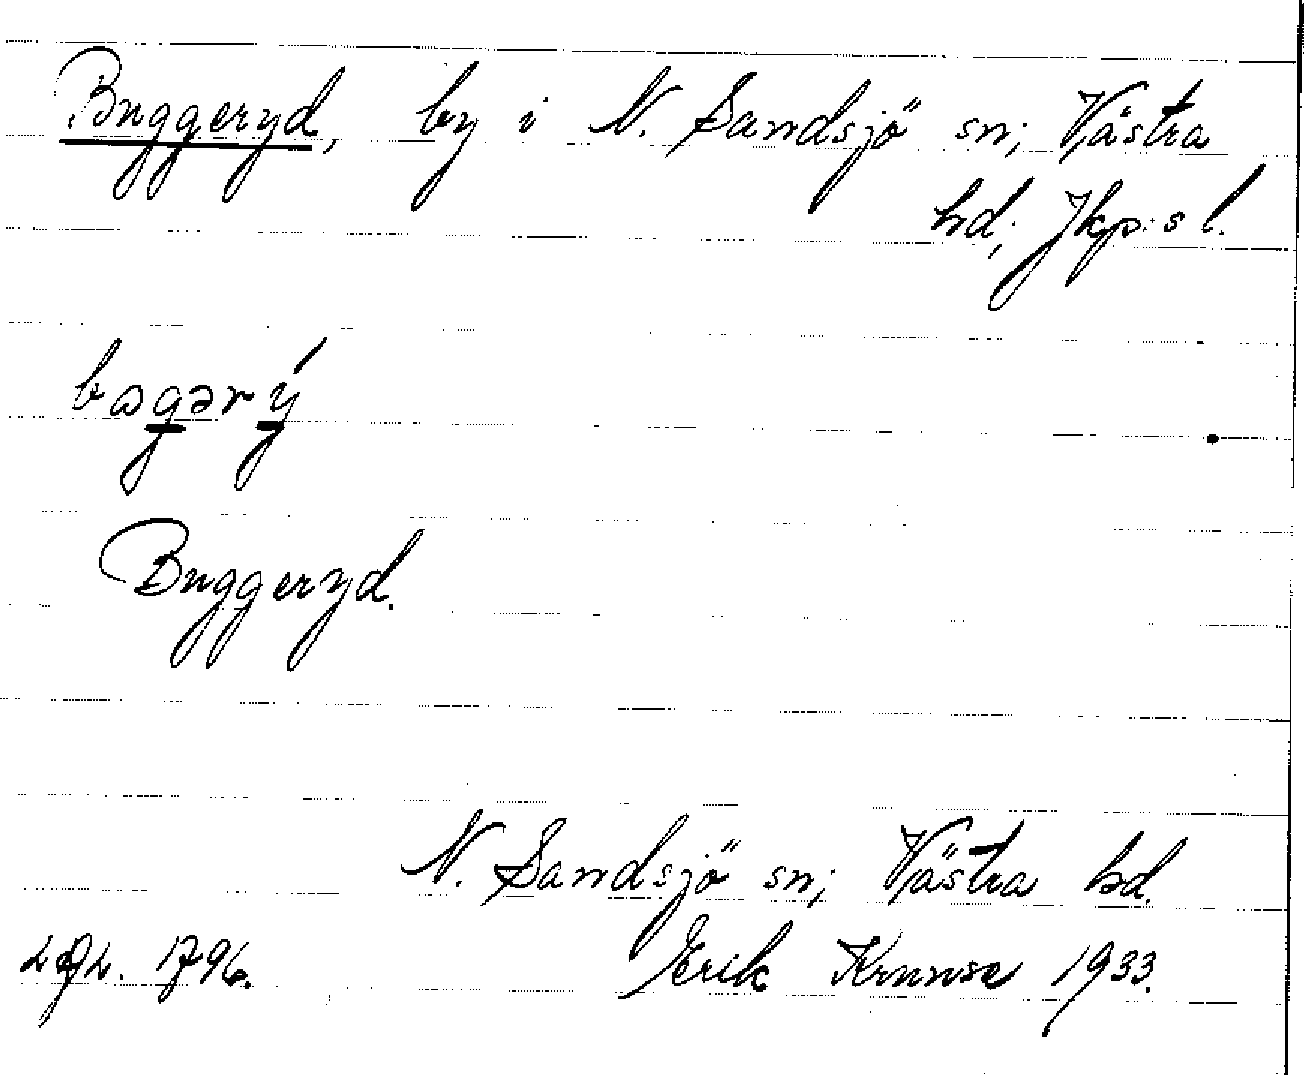 Buggeryd, by i N. Sandsjö sn; Västra
hd; Jkp:s l.
bɷgərý
Buggeryd.
N. Sandsjö sn; Västra hd.
1796. Erik Krunse 1933.